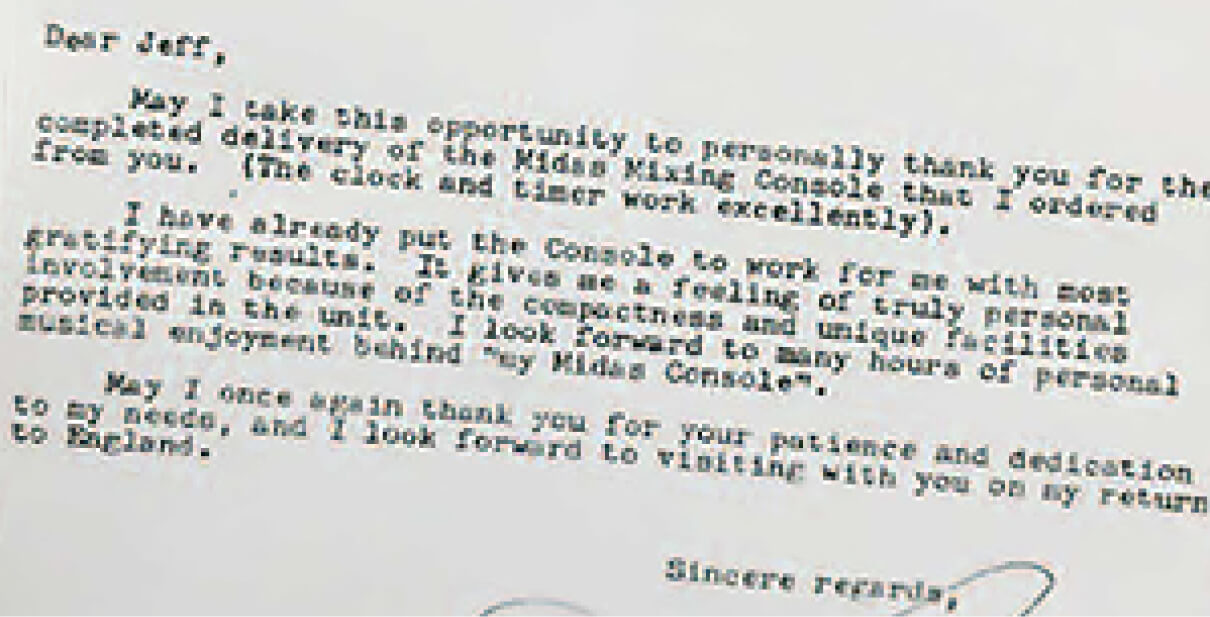 Dear Jeff,
May I take this opportunity to personally thank you for the
completed delivery of the Midas Mixing Console that I ordered
from you. (The clock and timer work excellently).
I have already put the Console to work for me with most
gratifying results. It gives me a feeling of truly personal
involvement because of the compactness and unique facilities
provided in the unit. I look forward to many hours of personal
musical enjoyment behind "my Midas Console".
May I once again thank you for your patience and dedication
to my needs, and I look forward to visiting with you on my return
to England.
Sincere regards,